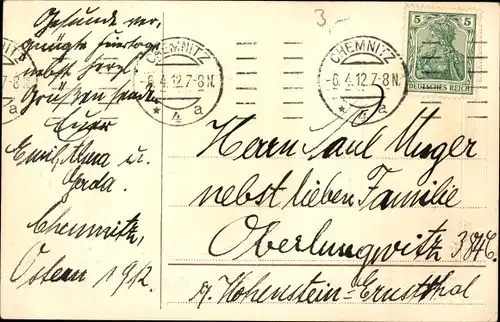 Gesunde ver-
gnügte Feiertage
nebst herzl.
Grüßen senden
Euer
Emil, Alma u.
Gerda.
Chemnitz,
Ostern 1912.
3,-
CHEMNITZ
-6.4.12.7-8N.
* 4 a
CHEMNITZ
-6.4.12.7-8N.
* 4 a
5 5
DEUTSCHES REICH
Herrn Paul Unger
nebst lieben Familie
Oberlungwitz 384C.
b. Hohenstein-Ernstthal